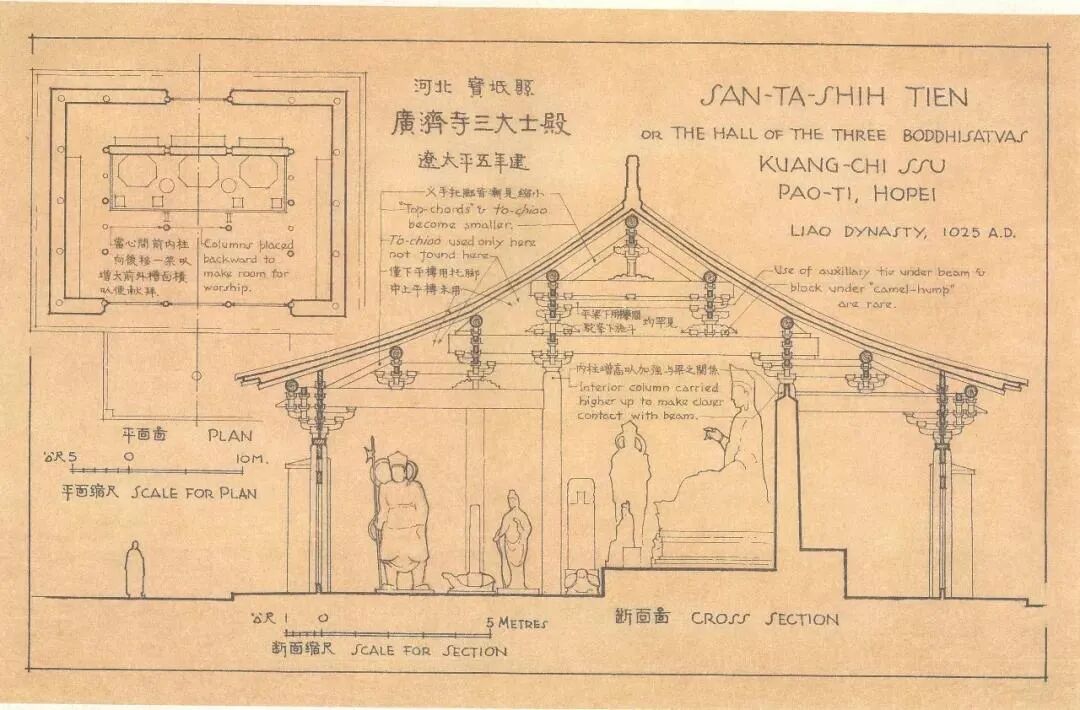 河北 寶坻縣
廣濟寺三大士殿
遼太平五年建
SAN-TA-SHIH TIEN
OR THE HALL OF THE THREE BODDHISATVAS
KUANG-CHI SSU
PAO-TI, HOPEI
LIAO DYNASTY, 1025 A.D.
叉手托腳皆漸見縮小
"Top-chords" & to-chiao
become smaller.
To-chiao used only here
not found here
僅下平槫用托腳
中上平槫未用
當心間前內柱
向後移一架以
增大前外槽面積
以便献拜.
Columns placed
backward to
make room for
worship.
Use of auxiliary tie under beam &
block under "camel-hump"
are rare.
平梁下用襻間
駝峯下施斗
均罕見
內柱增高以加強与梁之關係
Interior column carried
higher up to make closer
contact with beam.
平面圖 PLAN
公尺 5 0 10 M.
平面缩尺 SCALE FOR PLAN
公尺 1 0 5 METRES
断面缩尺 SCALE FOR SECTION
断面圖 CROSS SECTION